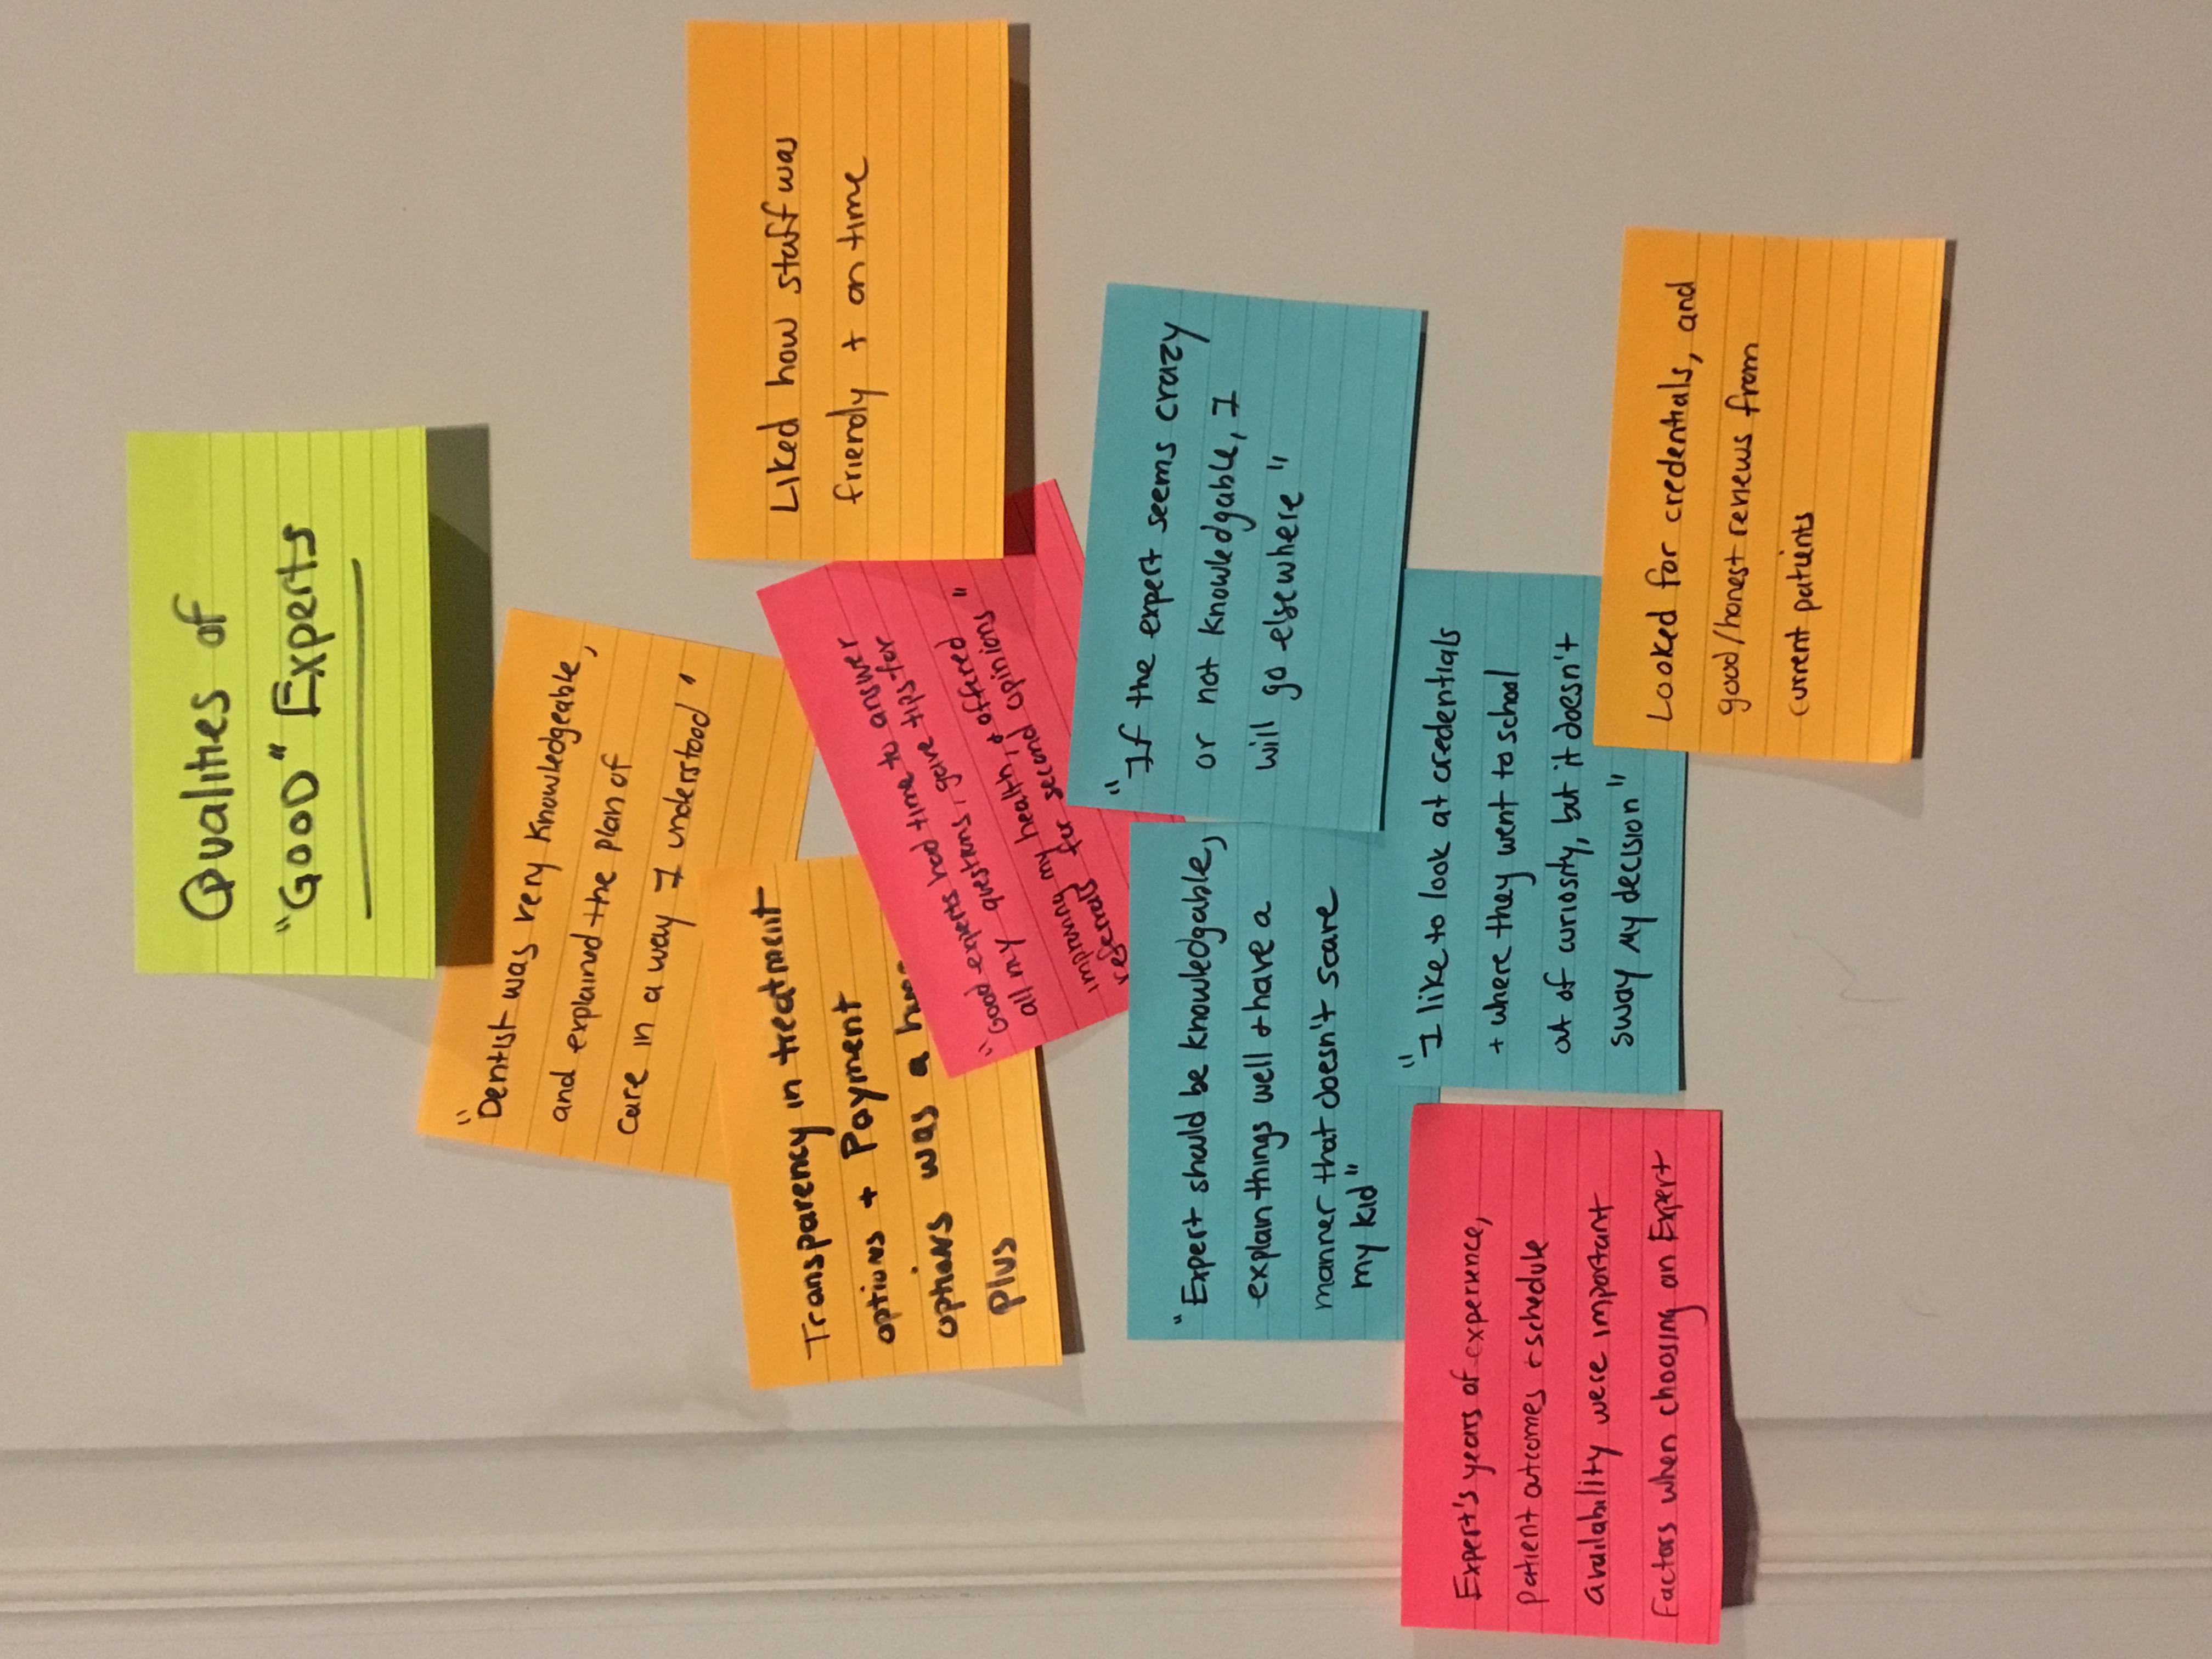 Qualities of
"GOOD" Experts
"Dentist was very knowledgeable,
and explained the plan of
care in a way I understood"
Transparency in treatment
options + Payment
options was a
Plus
Liked how staff was
friendly + on time
"Good experts had time to answer
all my questions, gave tips for
improving my health, + offered
referrals for second opinions"
"Expert should be knowledgable,
explain things well + have a
manner that doesn't scare
my kid"
"If the expert seems crazy
or not knowledgable, I
will go elsewhere"
Expert's years of experience,
patient outcomes + schedule
availability were important
Factors when choosing an Expert
"I like to look at credentials
+ where they went to school
out of curiosity, but it doesn't
sway my decision"
Looked for credentials, and
good/honest reviews from
current patients